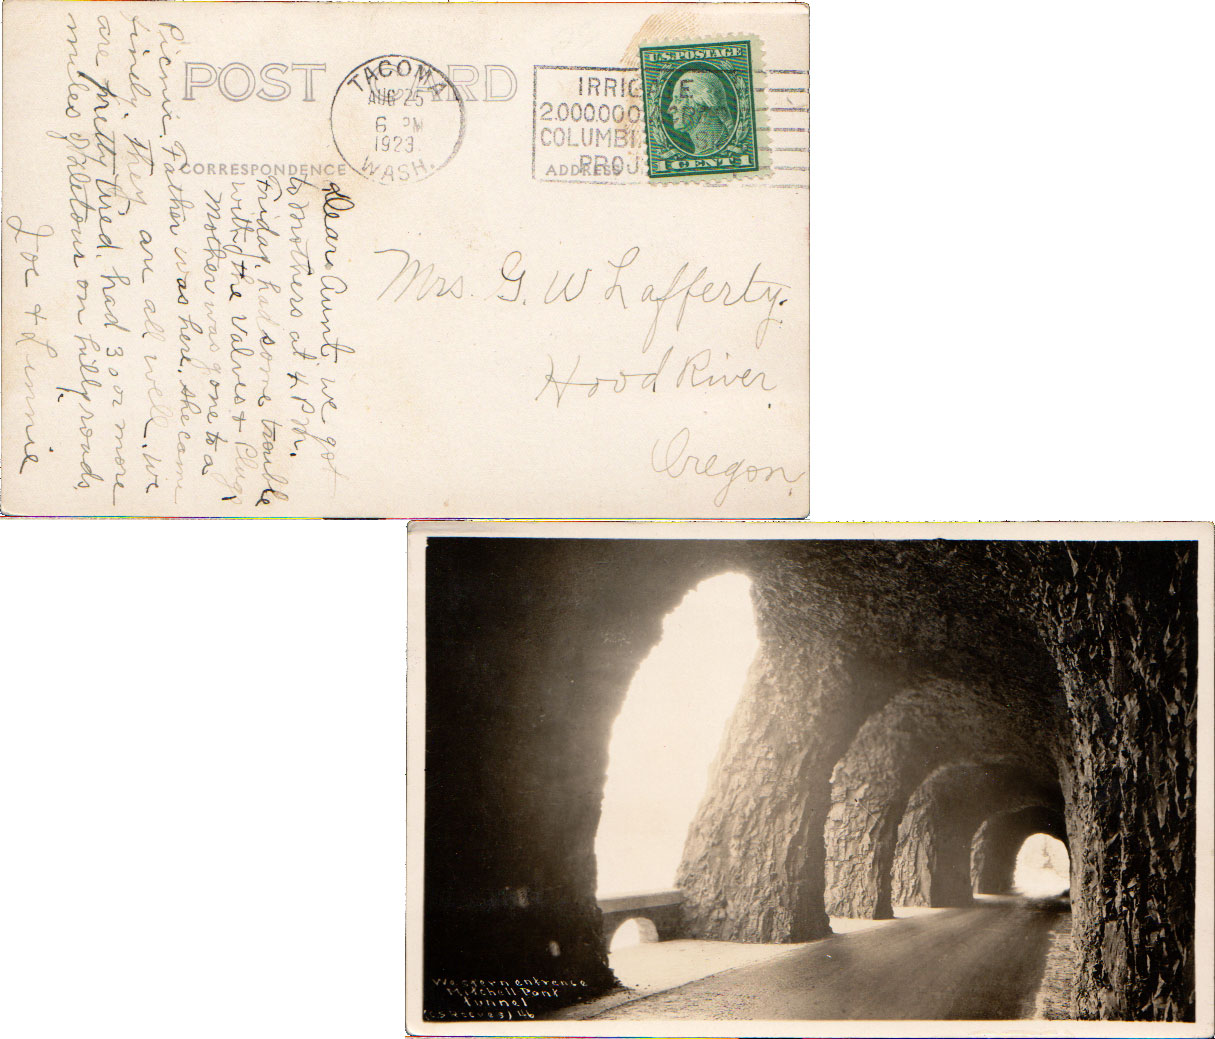 POST CARD
TACOMA
AUG 25
6 PM
1923
WASH.
IRRIG E
2.000.000
COLUMBI
PROJ
U.S. POSTAGE
1 CENT 1
CORRESPONDENCE
ADDRESS
Dear Aunt we got
to Mothers at 4 P.M.
Friday. had some trouble
with the valves & Plugs
Mother was gone to a
Picnic. Father was here. she came
finely. They are all well. we
are pretty tired. had 3 or more
miles of on hilly roads.
Joe & Linnie
Mrs. G. W Lafferty.
Hood River
Oregon.
Western entrance
Mitchell Point
tunnel
(C S Reeves) 46